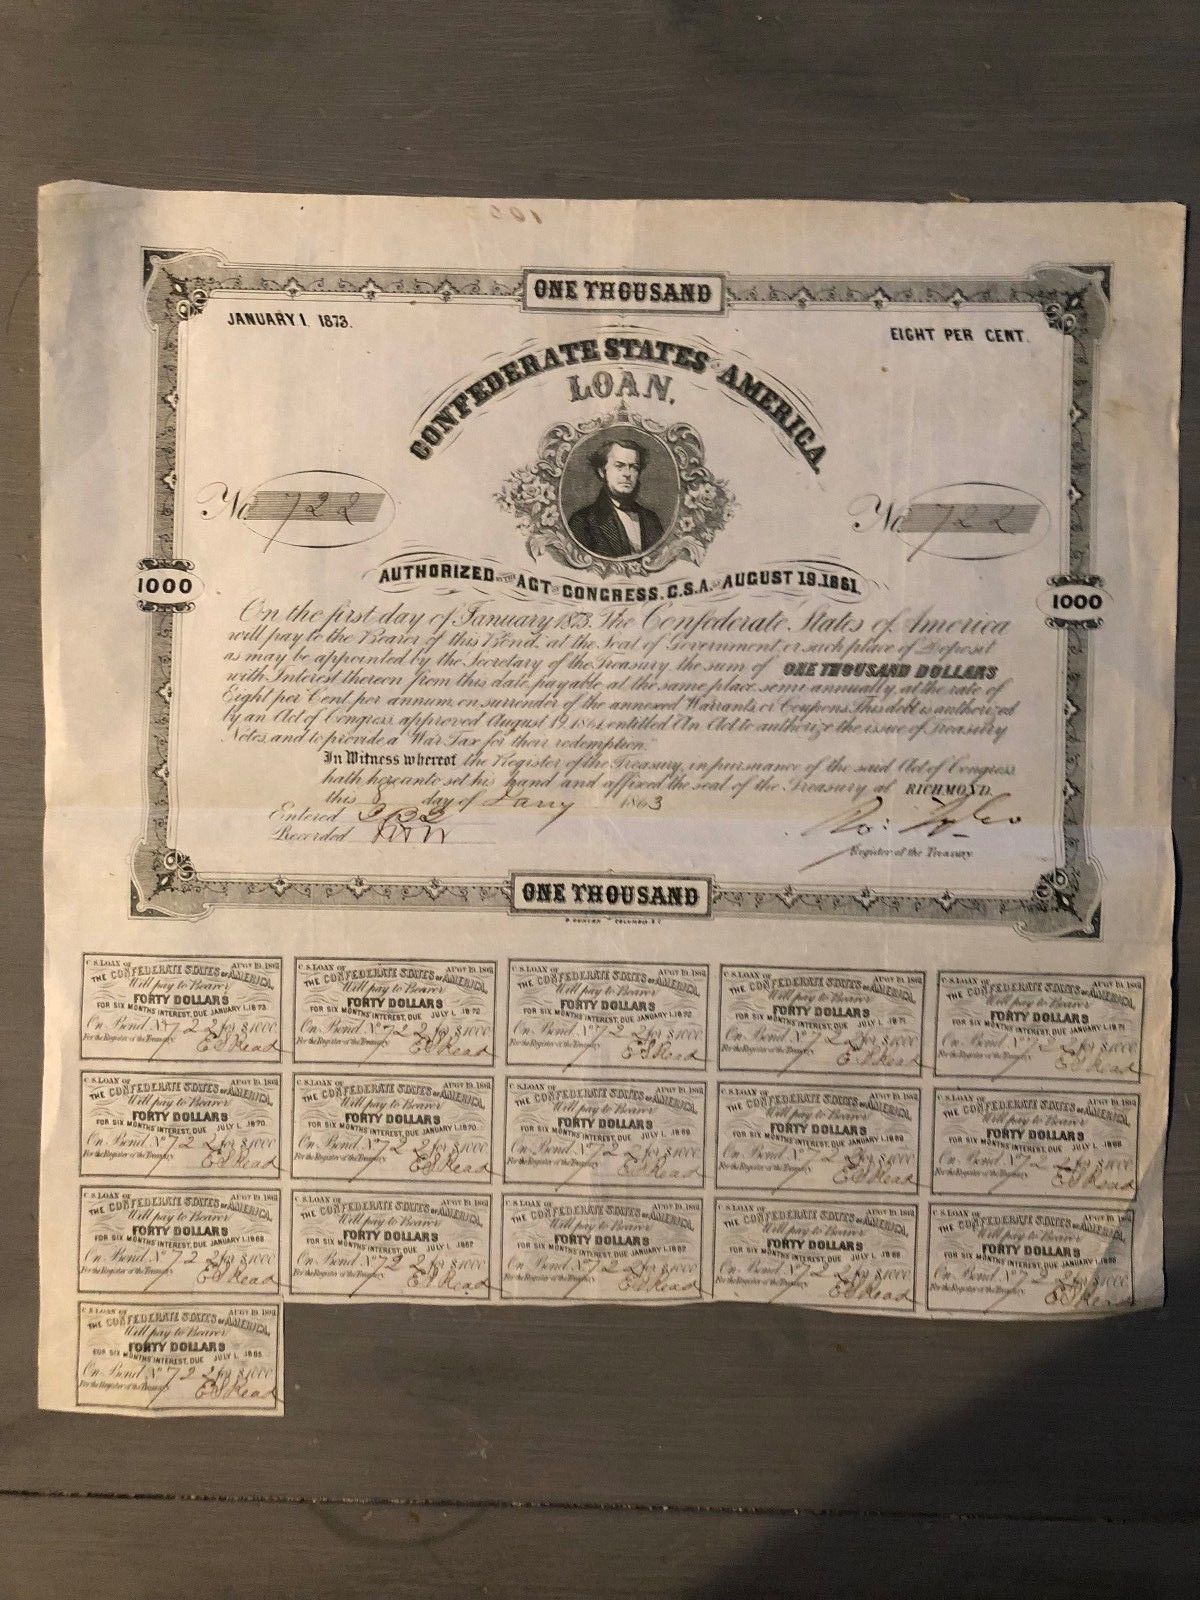 ONE THOUSAND
JANUARY 1. 1873.
EIGHT PER CENT.
CONFEDERATE STATES OF AMERICA.
LOAN.
No 722
No 722
AUTHORIZED BY THE ACT OF CONGRESS. C.S.A. OF AUGUST 19.1861.
1000
1000
On the first day of January 1873. The Confederate States of America
will pay to the Bearer of this Bond, at the Seat of Government, or such place of Deposit
as may be appointed by the Secretary of the Treasury the sum of ONE THOUSAND DOLLARS
with Interest thereon from this date, payable at the same place semi annually, at the rate of
Eight per Cent. per annum on surrender of the annexed Warrants or Coupons. This debt is authorized
by an Act of Congress approved August 19, 1861, entitled "An Act to authorize the issue of Treasury
Notes, and to provide a War Tax for their redemption."
In Witness whereof the Register of the Treasury, in pursuance of the said Act of Congress
hath hereunto set his hand and affixed the seal of the Treasury at RICHMOND.
this 8 day of Jany 1863
Entered
Recorded
Ro: Tyler
Register of the Treasury
ONE THOUSAND
B. DUNCAN COLUMBIA S.C.
C.S. LOAN OF AUGT 19, 1861
THE CONFEDERATE STATES OF AMERICA,
Will pay to Bearer
FORTY DOLLARS
FOR SIX MONTHS INTEREST, DUE JANUARY 1, 1873.
On Bond No 722 for $1000
For the Register of the Treasury E S Read
C.S. LOAN OF AUGT 19, 1861
THE CONFEDERATE STATES OF AMERICA,
Will pay to Bearer
FORTY DOLLARS
FOR SIX MONTHS INTEREST, DUE JULY 1, 1872
On Bond No 722 for $1000
For the Register of the Treasury E S Read
C.S. LOAN OF AUGT 19, 1861
THE CONFEDERATE STATES OF AMERICA,
Will pay to Bearer
FORTY DOLLARS
FOR SIX MONTHS INTEREST, DUE JANUARY 1, 1872
On Bond No 722 for $1000
For the Register of the Treasury E S Read
C.S. LOAN OF AUGT 19, 1861
THE CONFEDERATE STATES OF AMERICA,
Will pay to Bearer
FORTY DOLLARS
FOR SIX MONTHS INTEREST, DUE JULY 1, 1871
On Bond No 722 for $1000
For the Register of the Treasury E S Read
C.S. LOAN OF AUGT 19, 1861
THE CONFEDERATE STATES OF AMERICA,
Will pay to Bearer
FORTY DOLLARS
FOR SIX MONTHS INTEREST, DUE JANUARY 1, 1871
On Bond No 722 for $1000
For the Register of the Treasury E S Read
C.S. LOAN OF AUGT 19, 1861
THE CONFEDERATE STATES OF AMERICA,
Will pay to Bearer
FORTY DOLLARS
FOR SIX MONTHS INTEREST, DUE JULY 1, 1870.
On Bond No 722 for $1000
For the Register of the Treasury E S Read
C.S. LOAN OF AUGT 19, 1861
THE CONFEDERATE STATES OF AMERICA,
Will pay to Bearer
FORTY DOLLARS
FOR SIX MONTHS INTEREST, DUE JANUARY 1, 1870.
On Bond No 722 for $1000
For the Register of the Treasury E S Read
C.S. LOAN OF AUGT 19, 1861
THE CONFEDERATE STATES OF AMERICA,
Will pay to Bearer
FORTY DOLLARS
FOR SIX MONTHS INTEREST, DUE JULY 1, 1869
On Bond No 722 for $1000
For the Register of the Treasury E S Read
C.S. LOAN OF AUGT 19, 1861
THE CONFEDERATE STATES OF AMERICA,
Will pay to Bearer
FORTY DOLLARS
FOR SIX MONTHS INTEREST, DUE JANUARY 1, 1869
On Bond No 722 for $1000
For the Register of the Treasury E S Read
C.S. LOAN OF AUGT 19, 1861
THE CONFEDERATE STATES OF AMERICA,
Will pay to Bearer
FORTY DOLLARS
FOR SIX MONTHS INTEREST, DUE JULY 1, 1868
On Bond No 722 for $1000
For the Register of the Treasury E S Read
C.S. LOAN OF AUGT 19, 1861
THE CONFEDERATE STATES OF AMERICA,
Will pay to Bearer
FORTY DOLLARS
FOR SIX MONTHS INTEREST, DUE JANUARY 1, 1868
On Bond No 722 for $1000
For the Register of the Treasury E S Read
C.S. LOAN OF AUGT 19, 1861
THE CONFEDERATE STATES OF AMERICA,
Will pay to Bearer
FORTY DOLLARS
FOR SIX MONTHS INTEREST, DUE JULY 1, 1867
On Bond No 722 for $1000
For the Register of the Treasury E S Read
C.S. LOAN OF AUGT 19, 1861
THE CONFEDERATE STATES OF AMERICA,
Will pay to Bearer
FORTY DOLLARS
FOR SIX MONTHS INTEREST, DUE JANUARY 1, 1867
On Bond No 722 for $1000
For the Register of the Treasury E S Read
C.S. LOAN OF AUGT 19, 1861
THE CONFEDERATE STATES OF AMERICA,
Will pay to Bearer
FORTY DOLLARS
FOR SIX MONTHS INTEREST, DUE JULY 1, 1866
On Bond No 722 for $1000
For the Register of the Treasury E S Read
C.S. LOAN OF AUGT 19, 1861
THE CONFEDERATE STATES OF AMERICA,
Will pay to Bearer
FORTY DOLLARS
FOR SIX MONTHS INTEREST, DUE JANUARY 1, 1866
On Bond No 722 for $1000
For the Register of the Treasury E S Read
C.S. LOAN OF AUGT 19, 1861
THE CONFEDERATE STATES OF AMERICA,
Will pay to Bearer
FORTY DOLLARS
FOR SIX MONTHS INTEREST, DUE JULY 1, 1865
On Bond No 722 for $1000
For the Register of the Treasury E S Read